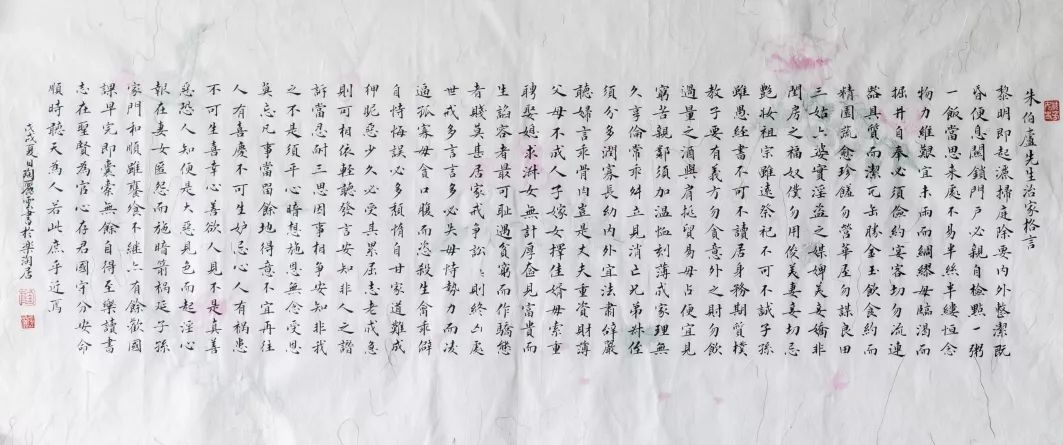 朱伯廬先生治家格言
黎明即起灑掃庭除要內外整潔既
昏便息關鎖門戶必親自檢點一粥
一飯當思來處不易半絲半縷恒念
物力維艱宜未雨而綢繆毋臨渴而
掘井自奉必須儉約宴客切勿流連
器具質而潔瓦缶勝金玉飲食約而
精園蔬愈珍饈勿營華屋勿謀良田
三姑六婆實淫盜之媒婢美妾嬌非
閨房之福奴僕勿用俊美妻妾切忌
艷妝祖宗雖遠祭祀不可不誠子孫
雖愚經書不可不讀居身務期質樸
教子要有義方勿貪意外之財勿飲
過量之酒與肩挑貿易毋占便宜見
窮苦親鄰須加溫恤刻薄成家理無
久享倫常乖舛立見消亡兄弟叔侄
須分多潤寡長幼內外宜法肅辭嚴
聽婦言乖骨肉豈是丈夫重資財薄
父母不成人子嫁女擇佳婿毋索重
聘娶媳求淑女無計厚奩見富貴而
生諂容者最可恥遇貧窮而作驕態
者賤莫甚居家戒爭訟訟則終凶處
世戒多言言多必失毋恃勢力而凌
逼孤寡毋貪口腹而恣殺生禽乖僻
自恃悔誤必多頹惰自甘家道難成
狎昵惡少久必受其累屈志老成急
則可相依輕聽發言安知非人之譖
訴當忍耐三思因事相爭安知非我
之不是須平心暗想施恩無念受恩
莫忘凡事當留餘地得意不宜再往
人有喜慶不可生妒忌心人有禍患
不可生喜幸心善欲人見不是真善
惡恐人知便是大惡見色而起淫心
報在妻女匿怨而施暗箭禍延子孫
家門和順雖饔飧不繼亦有餘歡國
課早完即囊橐無餘自得至樂讀書
志在聖賢為官心存君國守分安命
順時聽天為人若此庶乎近焉
戊戌夏月陶麗雲書於樂陶居